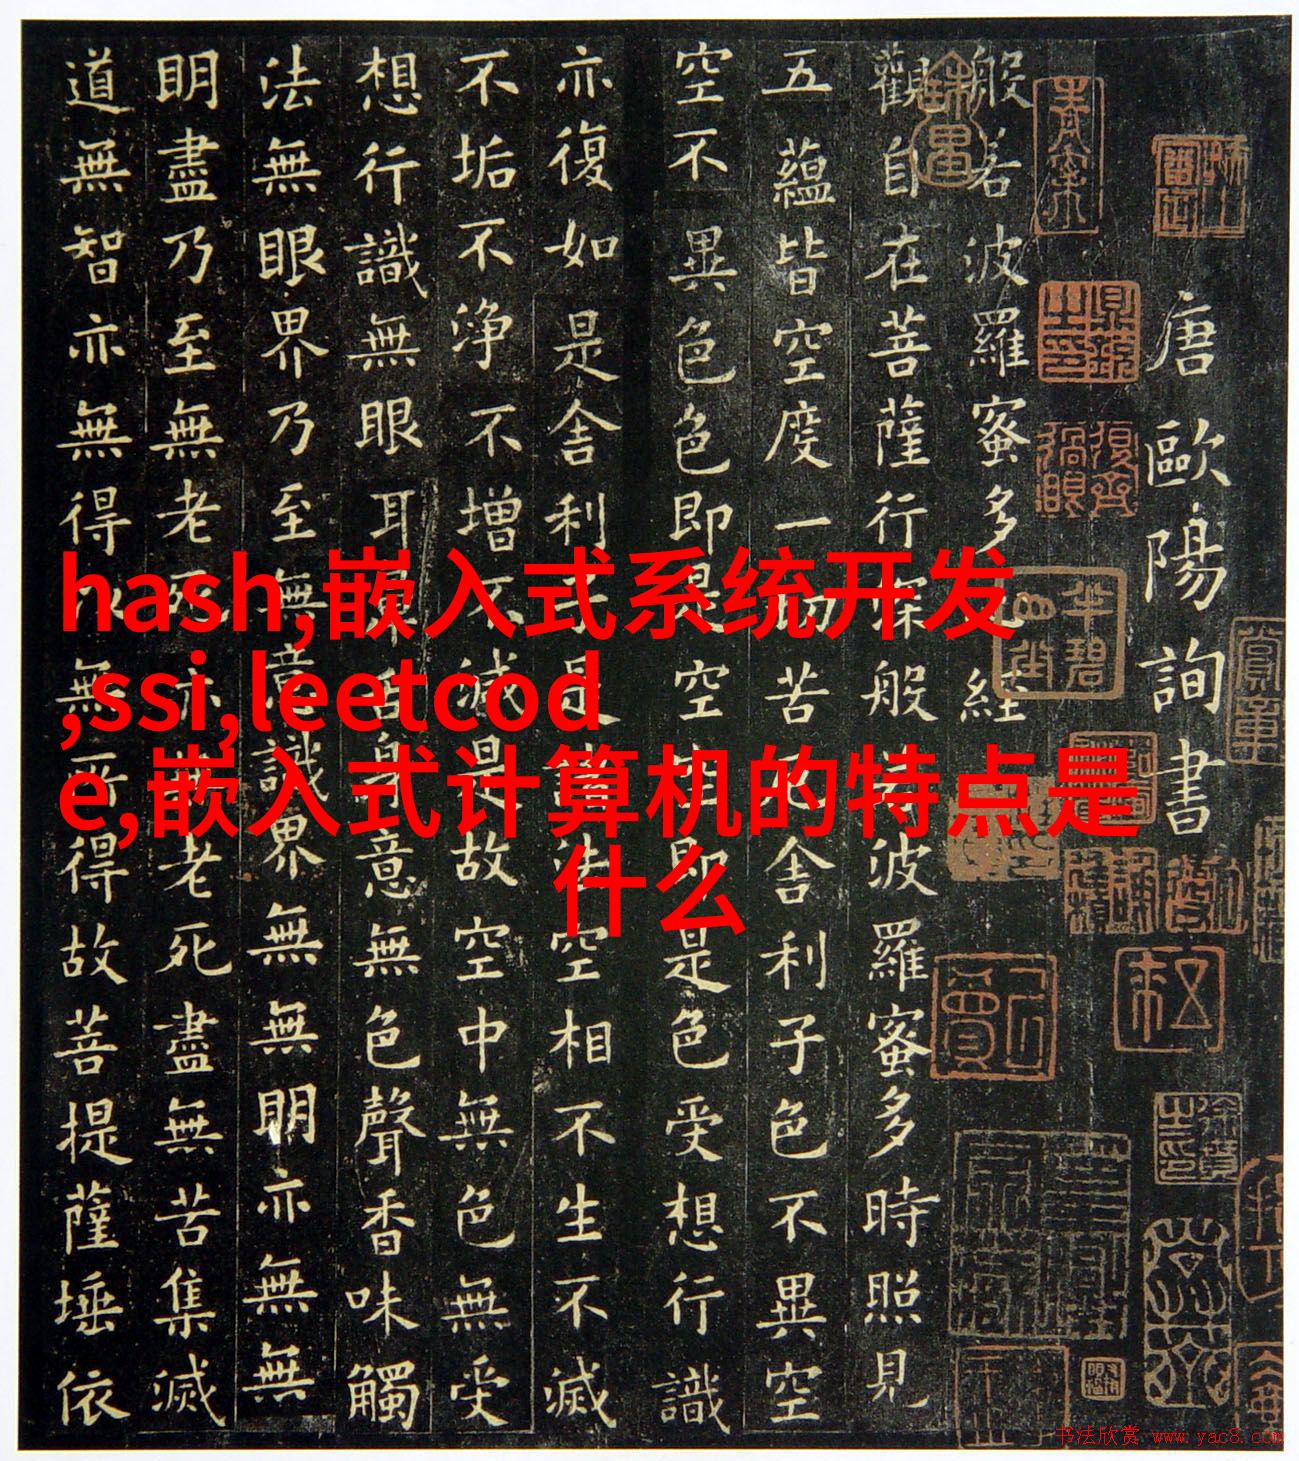 hash,嵌入式系统开发
,ssi,leetcod
e,嵌入式计算机的特点是
什么
唐歐陽詢書
般若波羅蜜多經
觀自在菩薩行深般若波羅蜜多時照見
五蘊皆空度一切苦厄舍利子色不異空
空不異色色即是空空即是色受想行識
亦復如是舍利子是諸法空相不生不滅
不垢不淨不增不減是故空中無色無受
想行識無眼耳鼻舌身意無色聲香味觸
法無眼界乃至無意識界無無明亦無無
明盡乃至無老死亦無老死盡無苦集滅
道無智亦無得以無所得故菩提薩埵依
书法欣赏 www.yac8.com